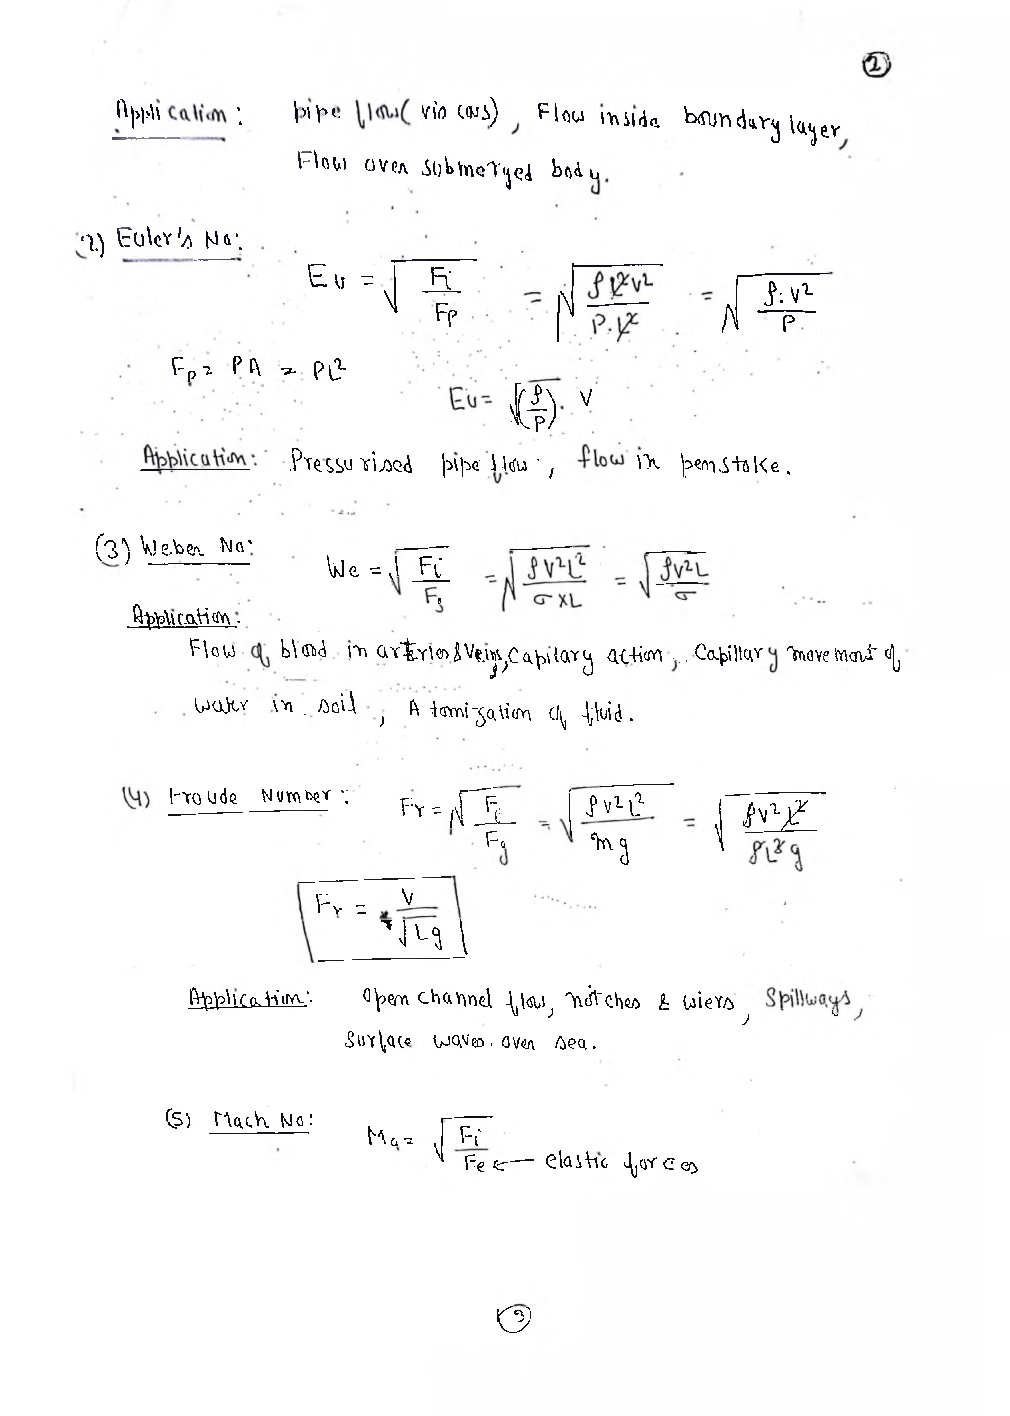 ②
Application: pipe flow( vis cous), Flow inside boundary layer,
Flow over submerged body.
(2) Euler's No:
Eu = √(Fi/Fp) = √(ρL²V²/P.L²) = √(ρ.V²/P)
Fp = PA = PL²
Eu = √(ρ/P). V
Application: Pressurised pipe flow, flow in penstoke.
(3) Weber No:
We = √(Fi/Fs) = √(ρV²L²/σ×L) = √(ρV²L/σ)
Application:
Flow of blood in arteries & Veins, Capilary action, Capillary movement of
water in soil, Atomization of fluid.
(4) Froude Number:
Fr = √(Fi/Fg) = √(ρV²L²/mg) = √(ρV²L²/ρL³g)
Fr = V/√Lg
Application: Open channel flow, notches & wiers, Spillways,
Surface waves over sea.
(5) Mach No:
Ma = √(Fi/Fe) ← elastic forces